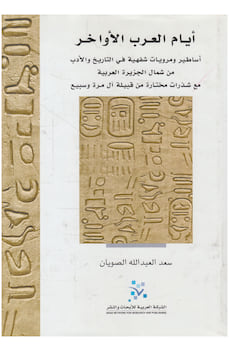 أيام العرب الأواخر
أساطير ومرويات شفهية في التاريخ والأدب
من شمال الجزيرة العربية
مع شذرات مختارة من قبيلة آل مرة وسبيع
سعد العبدالله الصويان
الشبكة العربية للأبحاث والنشر
ARAB NETWORK FOR RESEARCH AND PUBLISHING